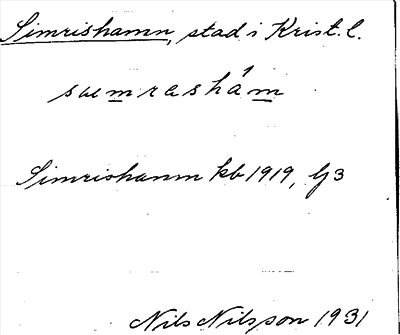 Simrishamn, stad i Krist. l.
sæmrashám
Simrishamn kb 1919, G3
Nils Nilsson 1931